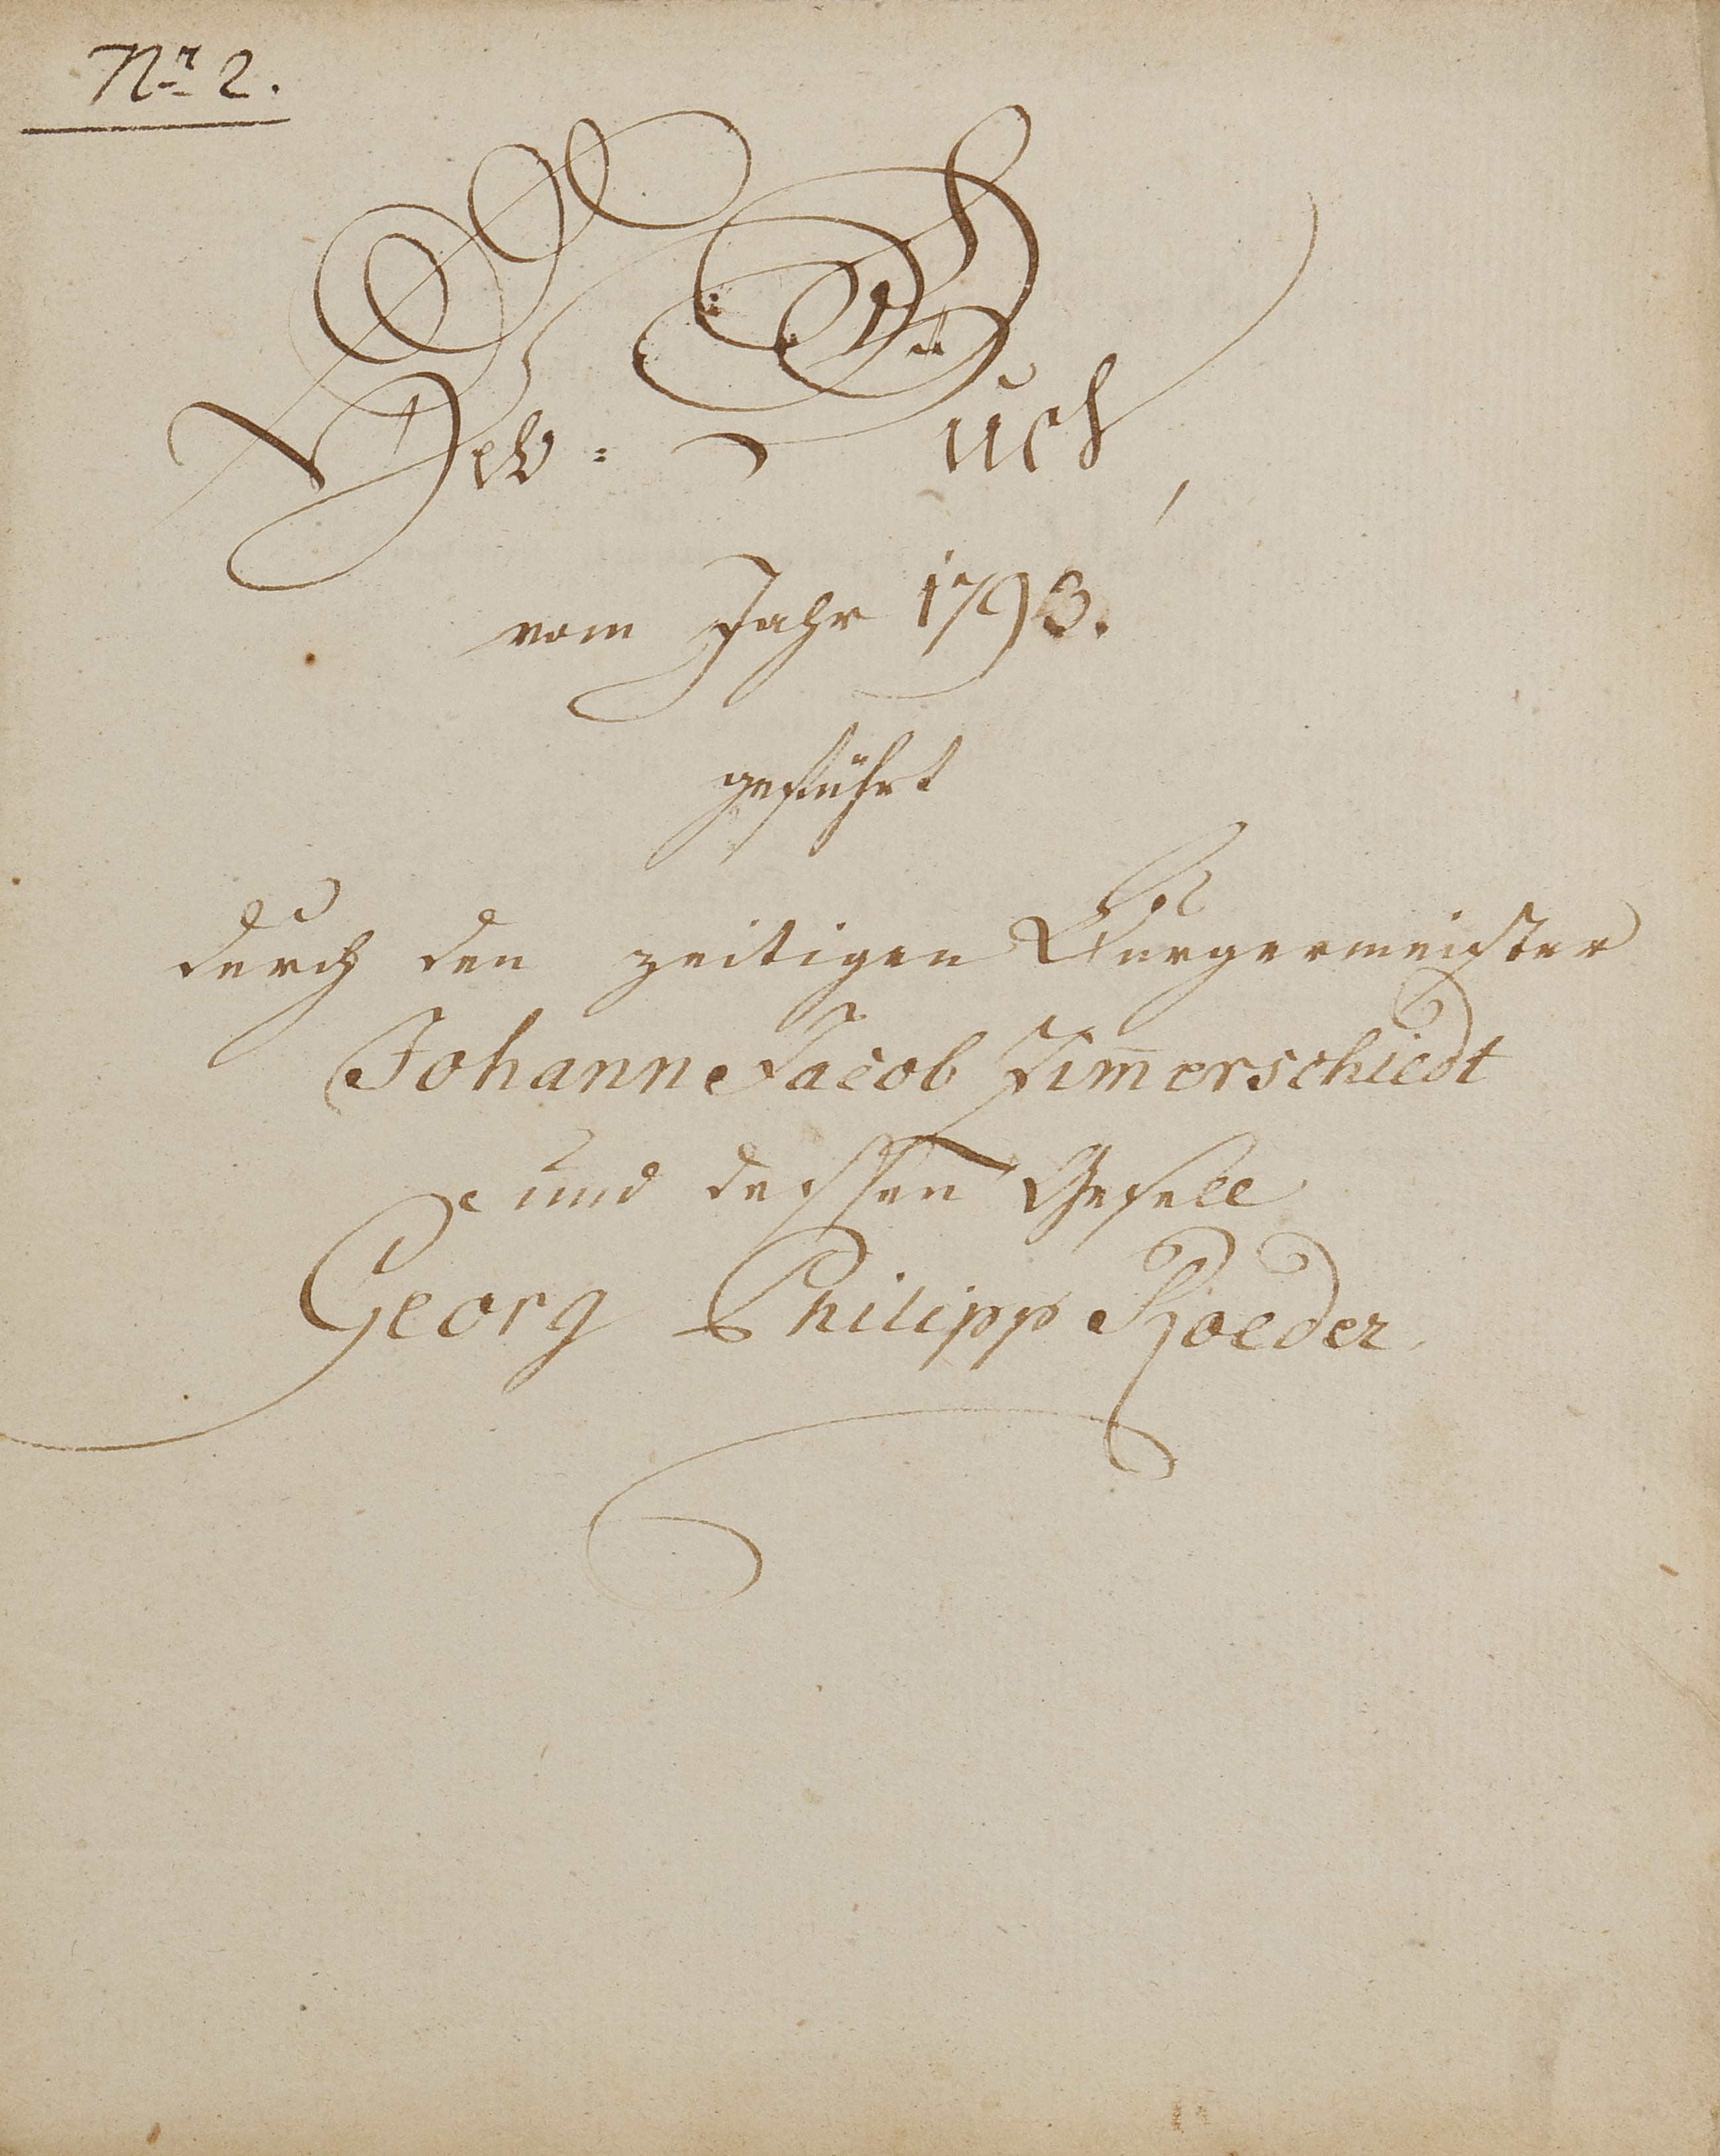 Nr. 2.
Heb = Buch,
vom Jahr 1793.
geführt
durch den zeitigen Burgermeister
Johann Jacob Zim̄erschiedt
und dessen Gesell
Georg Philipp Roeder.